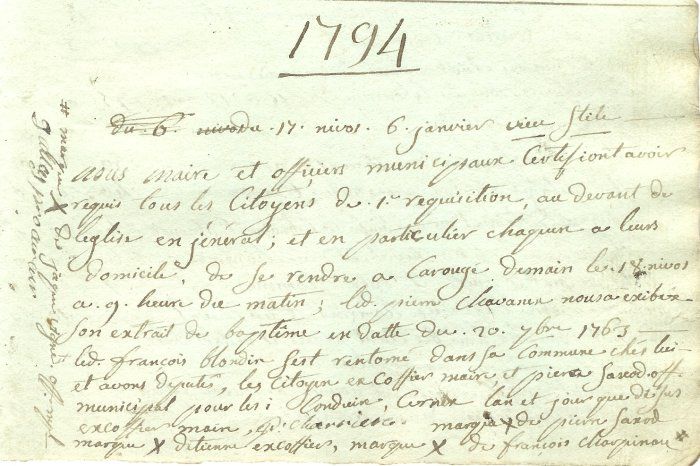 1794
du 6. nivos du 17. nivos. 6. janvier vieu stile
nous maire et officiers municipaux Certifiont avoir
requis tous les Citoyens de 1.e requisition, au devant de
l'eglise en jénéral; et en particulier chaqun a leurs
domicile, de se rendre a Carouge demain les 18 nivos
a 9. heure du matin; led. pierre Chavanne nous a exibé
son extrait de baptême en datte du 20. 7bre 1763
led. françois blondin s'est rentorné dans sa Commune ches lui
et avons deputés, les Citoyen excoffier maire, et pierre Saxod off.
municipal pour les i Conduire, Cernex lan et jour que de sus
excoffier maire, marque X de pierre Saxod
marque X detienne excoffier, marque X de françois Charpinau #
# marque X de off. mpl